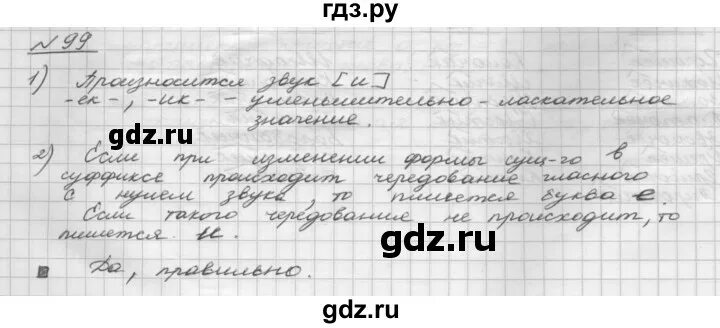 гдз.ру
№ 99
1) Произносится звук [и]
-ек-, -ик- - уменьшительно-ласкательное
значение.
gdz.ru
2) Если при изменении формы сущ-го в
суффиксе происходит чередование гласного
с нулем звука, то пишется буква е.
Если такого чередование не происходит, то
пишется и.
gdz.ru
Да, правильно.
gdz.ru